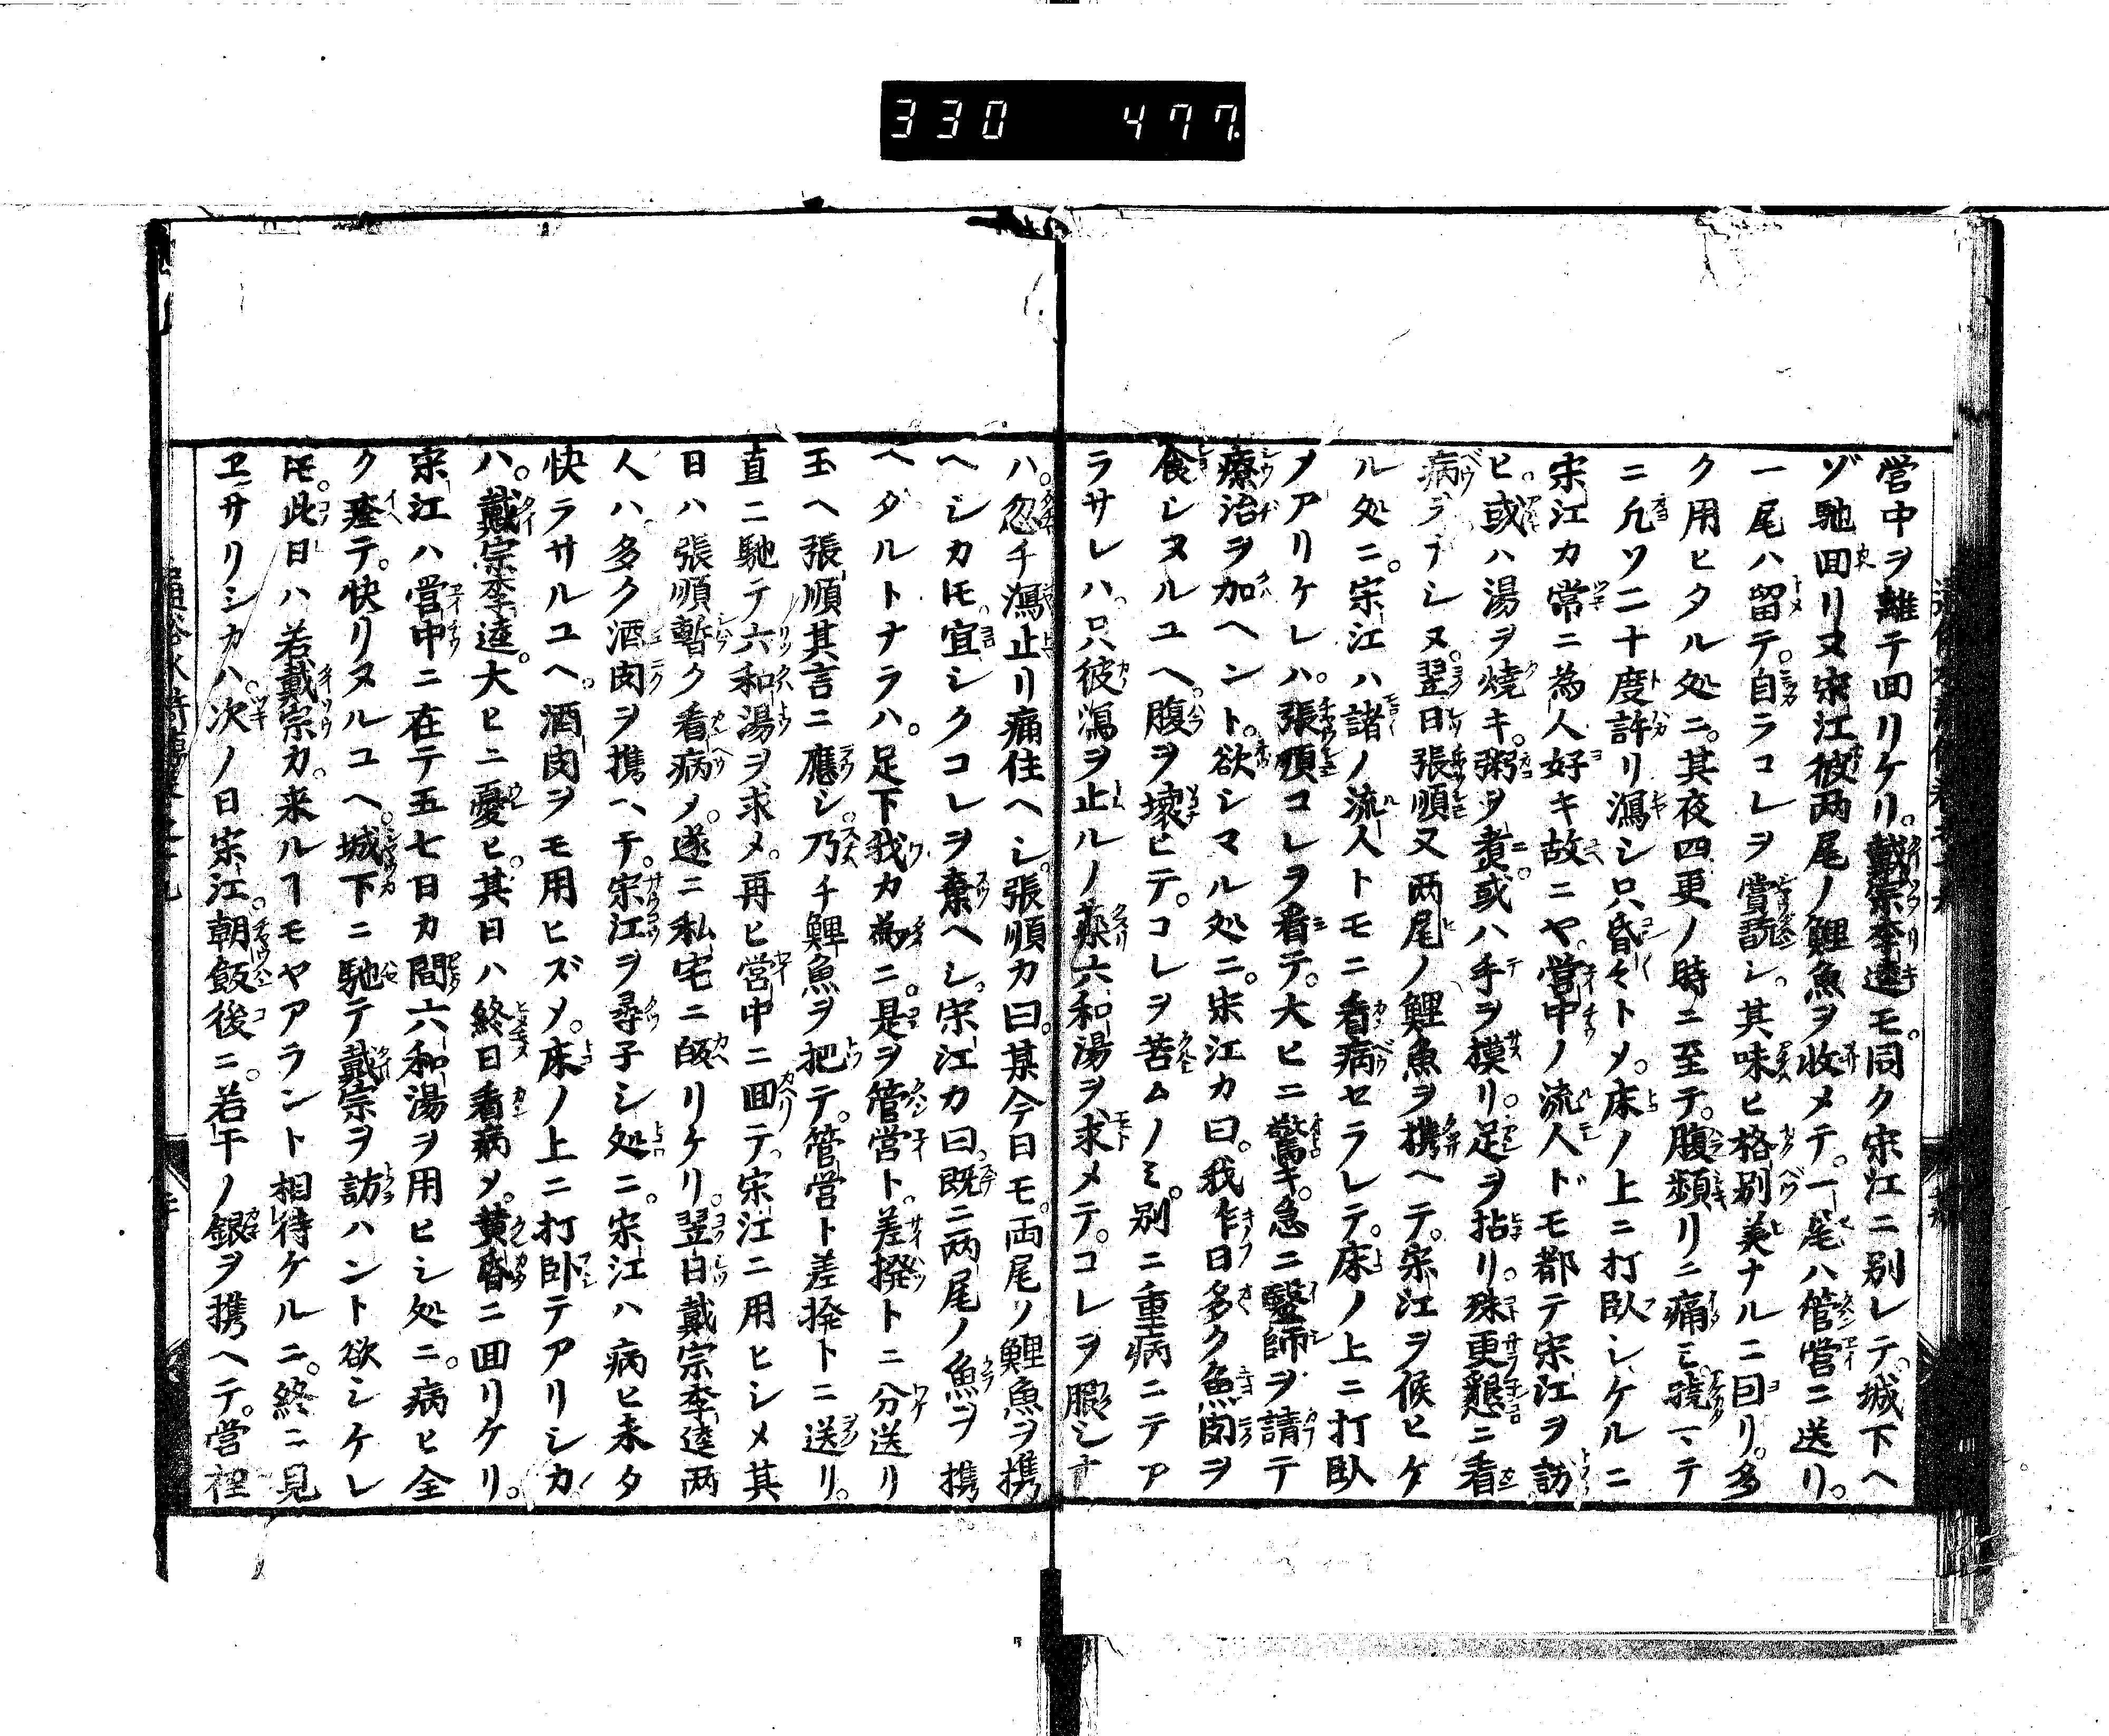 330 477.
営中ヲ離テ回リケリ。戴宗李逵モ。同ク宋江ニ別レテ。城下ヘ
ゾ馳回リヌ宋江彼両尾ノ鯉魚ヲ收メテ。一尾ハ管営ニ送リ。
一尾ハ留テ。自ラコレヲ嘗試シ。其味ヒ格别美ナルニ因リ。多
ク用ヒタル処ニ。其夜四更ノ時ニ至テ。腹頻リニ痛ミ。暁ニテ
ニ凡ソ二十度許リ瀉シ只昏々トメ。床ノ上ニ打臥シケルニ
宋江カ常ニ為人好キ故ニヤ。営中ノ流人ドモ都テ宋江ヲ訪
ヒ。或ハ湯ヲ焼キ。粥ヲ煑。或ハ手ヲ摸リ。足ヲ拈リ。殊更懇ニ看
病ヲナシヌ。翌日張順又両尾ノ鯉魚ヲ携ヘテ。宋江ヲ候ヒケ
ル処ニ。宋江ハ諸ノ流人トモニ看病セラレテ。床ノ上ニ打臥
メアリケレハ。張順コレヲ看テ。大ヒニ驚キ。急ニ醫師ヲ請テ
療治ヲ加ヘント。欲シマル処ニ。宋江カ曰。我乍日多ク魚肉ヲ
食シヌルユヘ。腹ヲ壊ヒテ。コレヲ苦ムノミ。別ニ重病ニテア
ラサレハ。只彼瀉ヲ止ルノ薬六和湯ヲ求メテ。コレヲ服シナ
ハ。忽チ瀉止リ痛住ヘシ。張順カ曰。某今日モ。両尾ノ鯉魚ヲ携
ヘシカ𪜈。宜シクコレヲ棄ヘシ。宋江カ曰。既ニ両尾ノ魚ヲ携
ヘタルトナラハ。足下我カ為ニ。是ヲ管営ト。差撥トニ分送リ
玉ヘ張順其言ニ應シ。乃チ鯉魚ヲ把テ。管営ト差撥トニ送リ。
直ニ馳テ六和湯ヲ求メ。再ヒ営中ニ回テ。宋江ニ用ヒシメ其
日ハ張順暫ク看病メ。遂ニ私宅ニ皈リケリ。翌日戴宗李逵両
人ハ。多ク酒肉ヲ携ヘ、テ。宋江ヲ尋子シ処ニ。宋江ハ病ヒ未タ
快ラサルユヘ。酒肉ヲモ用ヒズメ。床ノ上ニ打卧テアリシカ
ハ。戴宗李逵。大ヒニ憂ヒ。其日ハ終日看病メ。黄昏ニ回リケリ。
宋江ハ営中ニ在テ五七日カ間六和湯ヲ用ヒシ処ニ。病ヒ全
ク痊テ。快リヌルユヘ。城下ニ馳テ戴宗ヲ訪ハント欲シケレ
𪜈。此日ハ若戴宗カ。来ルヿモヤアラント相待ケルニ。終ニ見
ヱサリシカハ。次ノ日宋江。朝飯後ニ。若干ノ銀ヲ携ヘテ。営裡